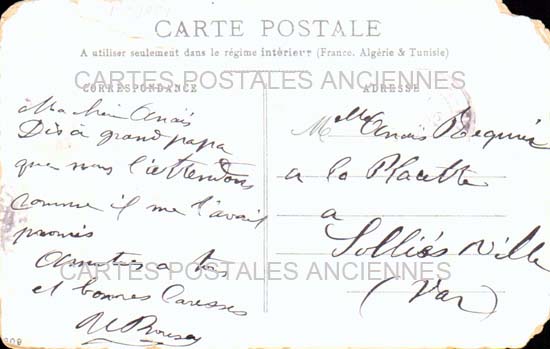 CARTE POSTALE
A utiliser seulement dans le régime intérieur (France, Algérie & Tunisie)
CARTES POSTALES ANCIENNES
CORRESPONDANCE
ADRESSE
Ma chère Anaïs
Dis à grand papa
que nous l'attendons
comme il me l'avait
promis
Amitiés a tous
et bonnes caresses
Melle Anaïs Requin
a la Placette
a
Solliès Ville
(Var)
CARTES POSTALES ANCIENNES
309